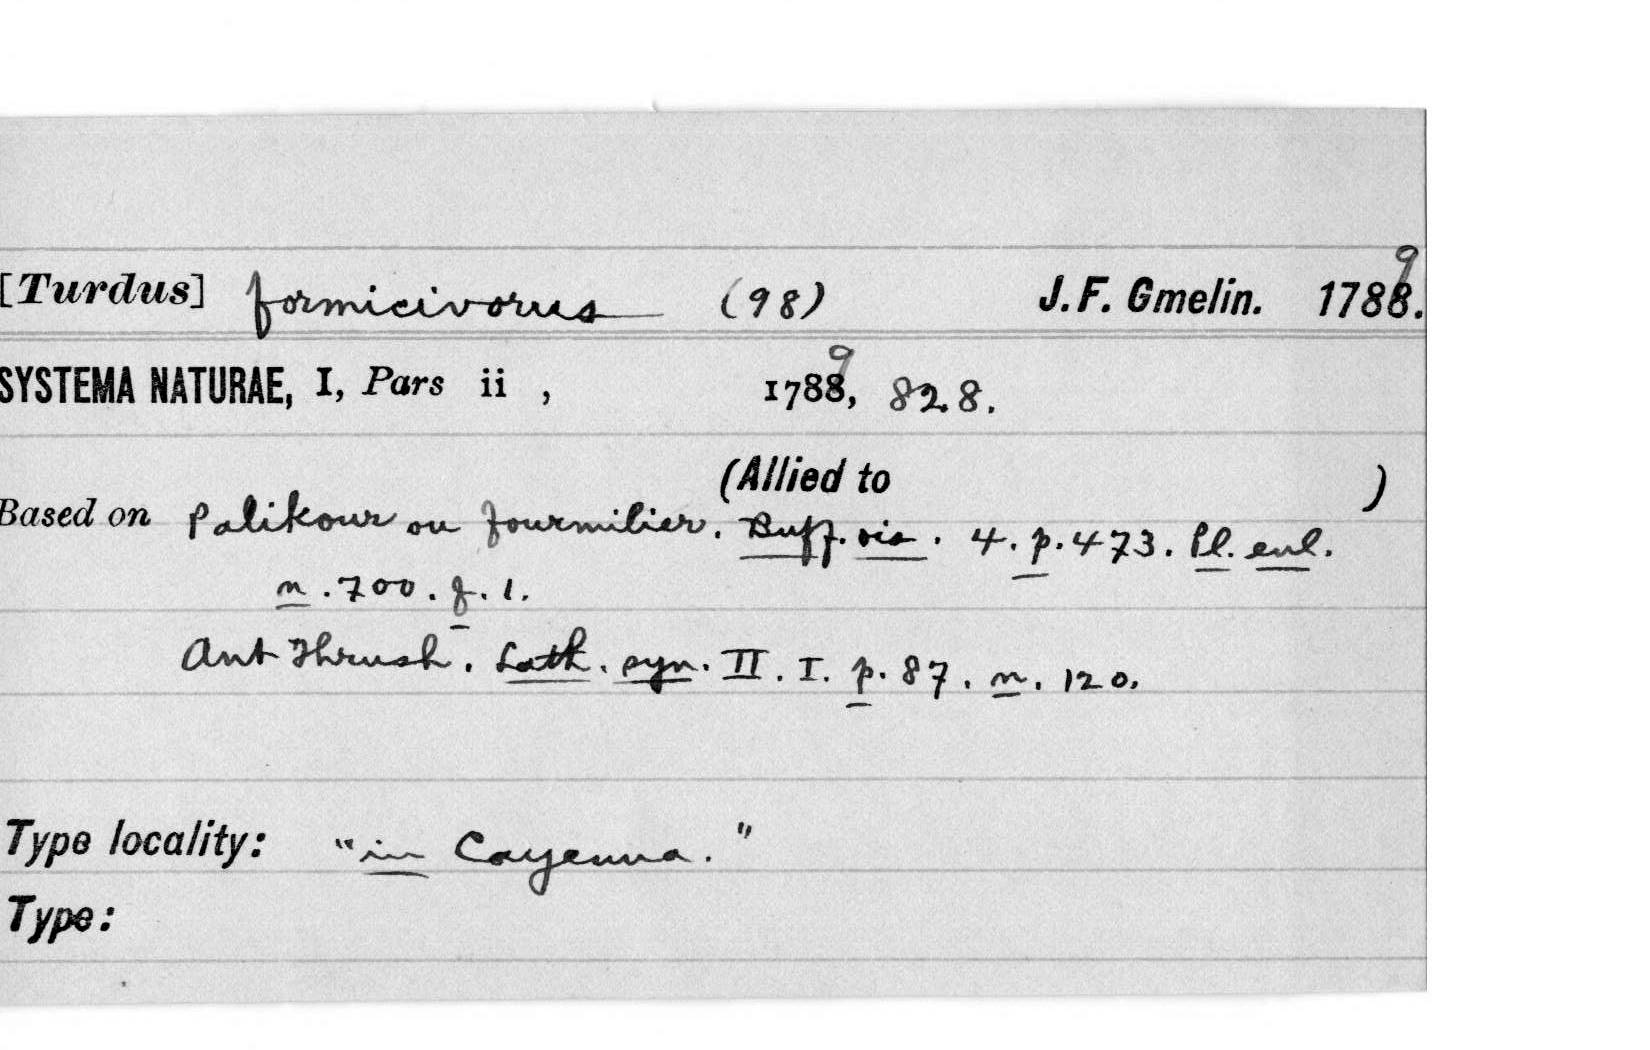 [Turdus] formicivorus (98) J. F. Gmelin. 1789.
SYSTEMA NATURAE, I, Pars ii , 1789, 828.
(Allied to )
Based on Palikour ou fourmilier. Buff. ois. 4. p. 473. Pl. enl.
n. 700. f. 1.
Ant Thrush. Lath. syn. II. I. p. 87. n. 120.
Type locality: "in Cayenna."
Type: